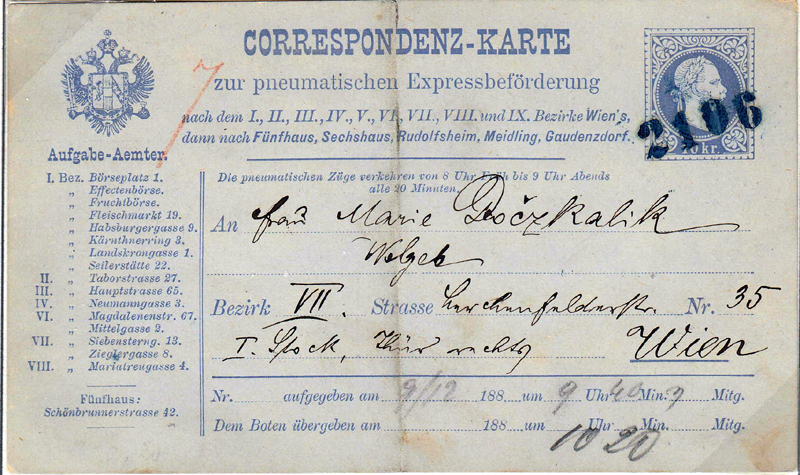 CORRESPONDENZ-KARTE
zur pneumatischen Expressbeförderung
nach dem I., II., III., IV., V., VI., VII., VIII. und IX. Bezirke Wien's,
dann nach Fünfhaus, Sechshaus, Rudolfsheim, Meidling, Gaudenzdorf.
7
10 kr.
2106
Aufgabe-Aemter.
I. Bez. Börseplatz 1.
„ Effectenbörse.
„ Fruchtbörse.
„ Fleischmarkt 19.
„ Habsburgergasse 9.
„ Kärnthnerring 3.
„ Landskrongasse 1.
„ Seilerstätte 22.
II. „ Taborstrasse 27.
III. „ Hauptstrasse 65.
IV. „ Neumanngasse 3.
VI. „ Magdalenenstr. 67.
„ Mittelgasse 2.
VII. „ Siebensterng. 13.
„ Zieglergasse 8.
VIII. „ Mariatreugasse 4.
Fünfhaus:
Schönbrunnerstrasse 42.
Die pneumatischen Züge verkehren von 8 Uhr Früh bis 9 Uhr Abends
alle 20 Minuten.
An Frau Marie Dočzkalik
Bezirk VII. Strasse Lerchenfelderstr. Nr. 35
I. Stock, Thür rechts Wien
Nr. aufgegeben am 9/12 188 um 9 Uhr 40 Min. Mitg.
Dem Boten übergeben am 188 um Uhr Min. Mitg.
10 20